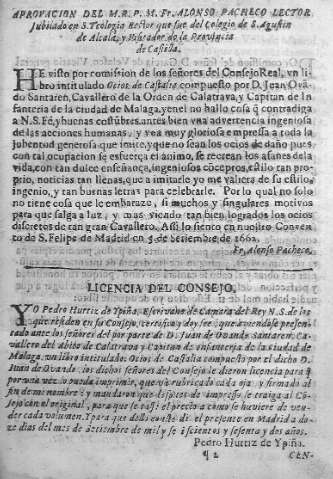 APROVACION DEL M.R. P. M. Fr. ALONSO PACHECO LECTOR
Jubilado en S. Teologia Retor que fue del Colegio de S. Agustin
de Alcalà, y de la Provincia
de Castilla.
HE visto por comision de los señores del Consejo Real, vn li-
bro intitulado Ocios de Castalia compuesto por D. Juan Ova-
do Santaren, Cavallero de la Orden de Calatrava, y Capitan de In-
fanteria de la ciudad de Malaga, y en el no hallo cosa q̃ contradiga
a N. S. Fè, y buenas costũbres. antes bien vna advertencia ingeniosa
de las acciones humanas, y vea muy gloriosa empressa a toda la
juventud generosa que imite, y que no sean los ocios de daño pues
con tal ocupacion se esfuerça el animo, se recrean los afanes de la
vida, con tan dulce enseñança, ingeniosos cõceptos, estilo tan pro-
prio, noticias tan llenas, que a imitarlo yo me valiera de su estilo,
ingenio, y tan buenas letras para celebrarle. Por lo qual no solo
no tiene cosa que le embaraze, si muchos y singulares motivos
para que salga a luz, y mas viendo tan bien logrados los ocios
discretos de tan gran Cavallero. Assi lo siento en nuestro Conven-
to de S. Felipe de Madrid en 5 de Setiembre de 1660.
Fr. Alonso Pacheco.
LICENCIA DEL CONSEJO.
YO Pedro Hurtiz de Ypiña, Escrivano de Camara del Rey N. S. de los
que residen en su Consejo, certifico y doy fee, que aviendose presen-
tado ante los señores del por parte de D. Juan de Ovando Santaren, Ca-
vallero del abito de Calatrava y Capitan de infanteria de la ciudad de
Malaga, vn libro intitulado: Ocios de Castalia compuesto por el dicho D.
Juan de Ovando. los dichos señores del Consejo le dieron licencia para q̃
por vna vez lo pueda imprimir, que và rubricado cada oja, y firmado al
fin de mi nombre: y mandaron que despues de impresso se traiga al Cõ-
sejo con el original, para que se tasse el precio a como se huviere de ven-
der cada volumen. Y para que dello conste di el presente en Madrid a do-
ze dias del mes de Setiembre de mil y seiscientos y sesenta y dos años.
Pedro Hurtiz de Ypiña.
¶ 2 CEN-